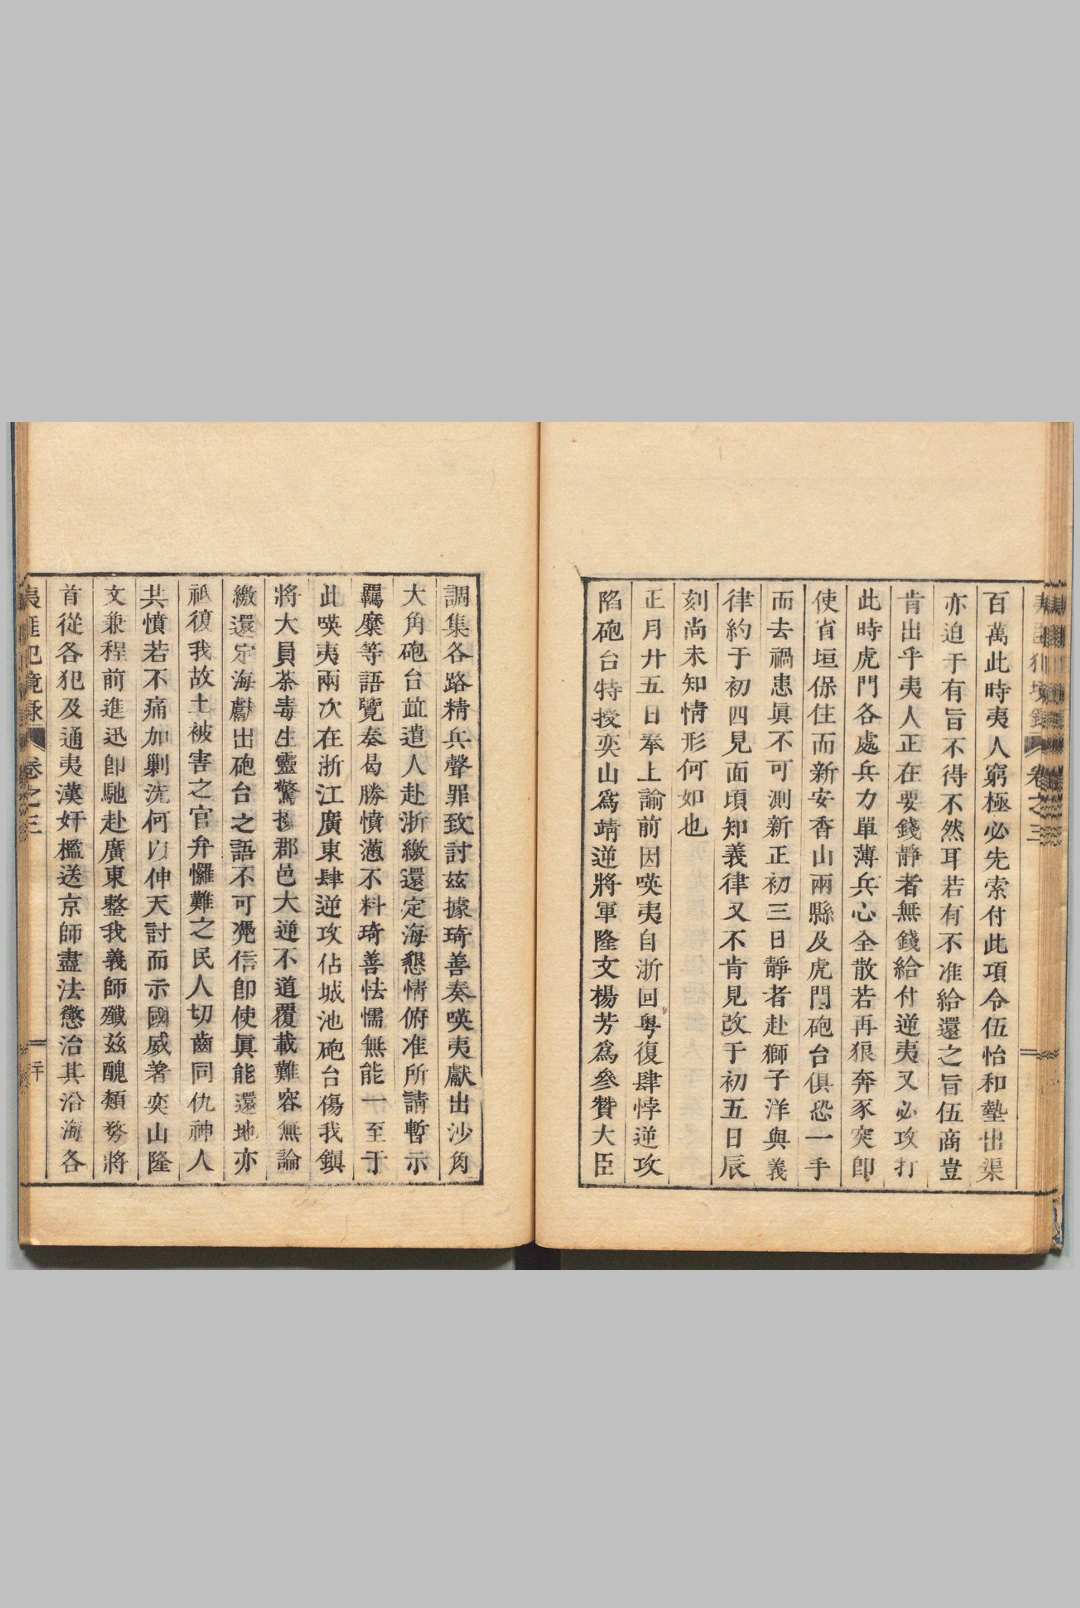 百萬此時夷人窮極必先索付此項令伍怡和墊出渠
亦迫于有旨不得不然耳若有不准給還之旨伍商豈
肯出乎夷人正在要錢靜者無錢給付逆夷又必攻打
此時虎門各處兵力單薄兵心全散若再狼奔豕突卽
使省垣保住而新安香山兩縣及虎門砲台俱恐一手
而去禍患眞不可測新正初三日靜者赴獅子洋與義
律約于初四見面頃知義律又不肯見改于初五日辰
刻尚未知情形何如也
正月廾五日奉上諭前因𠸄夷自浙回粵復肆悖逆攻
陷砲台特授奕山爲靖逆將軍隆文楊芳爲參贊大臣
調集各路精兵聲罪致討茲據琦善奏𠸄夷獻出沙角
大角砲台並遣人赴浙繳還定海懇情俯准所請暫示
羈縻等語覽奏曷勝憤懣不料琦善怯懦無能一至于
此𠸄夷兩次在浙江廣東肆逆攻佔城池砲台傷我鎭
將大員荼毒生靈驚擾郡邑大逆不道覆載難容無論
繳還定海獻出砲台之語不可凴信卽使眞能還地亦
祗復我故土被害之官弁罹難之民人切齒同仇神人
共憤若不痛加剿洗何以伸天討而示國威著奕山隆
文兼程前進迅卽馳赴廣東整我義師殲茲醜類務將
首從各犯及通夷漢奸檻送京師盡法懲治其沿海各
卷之三